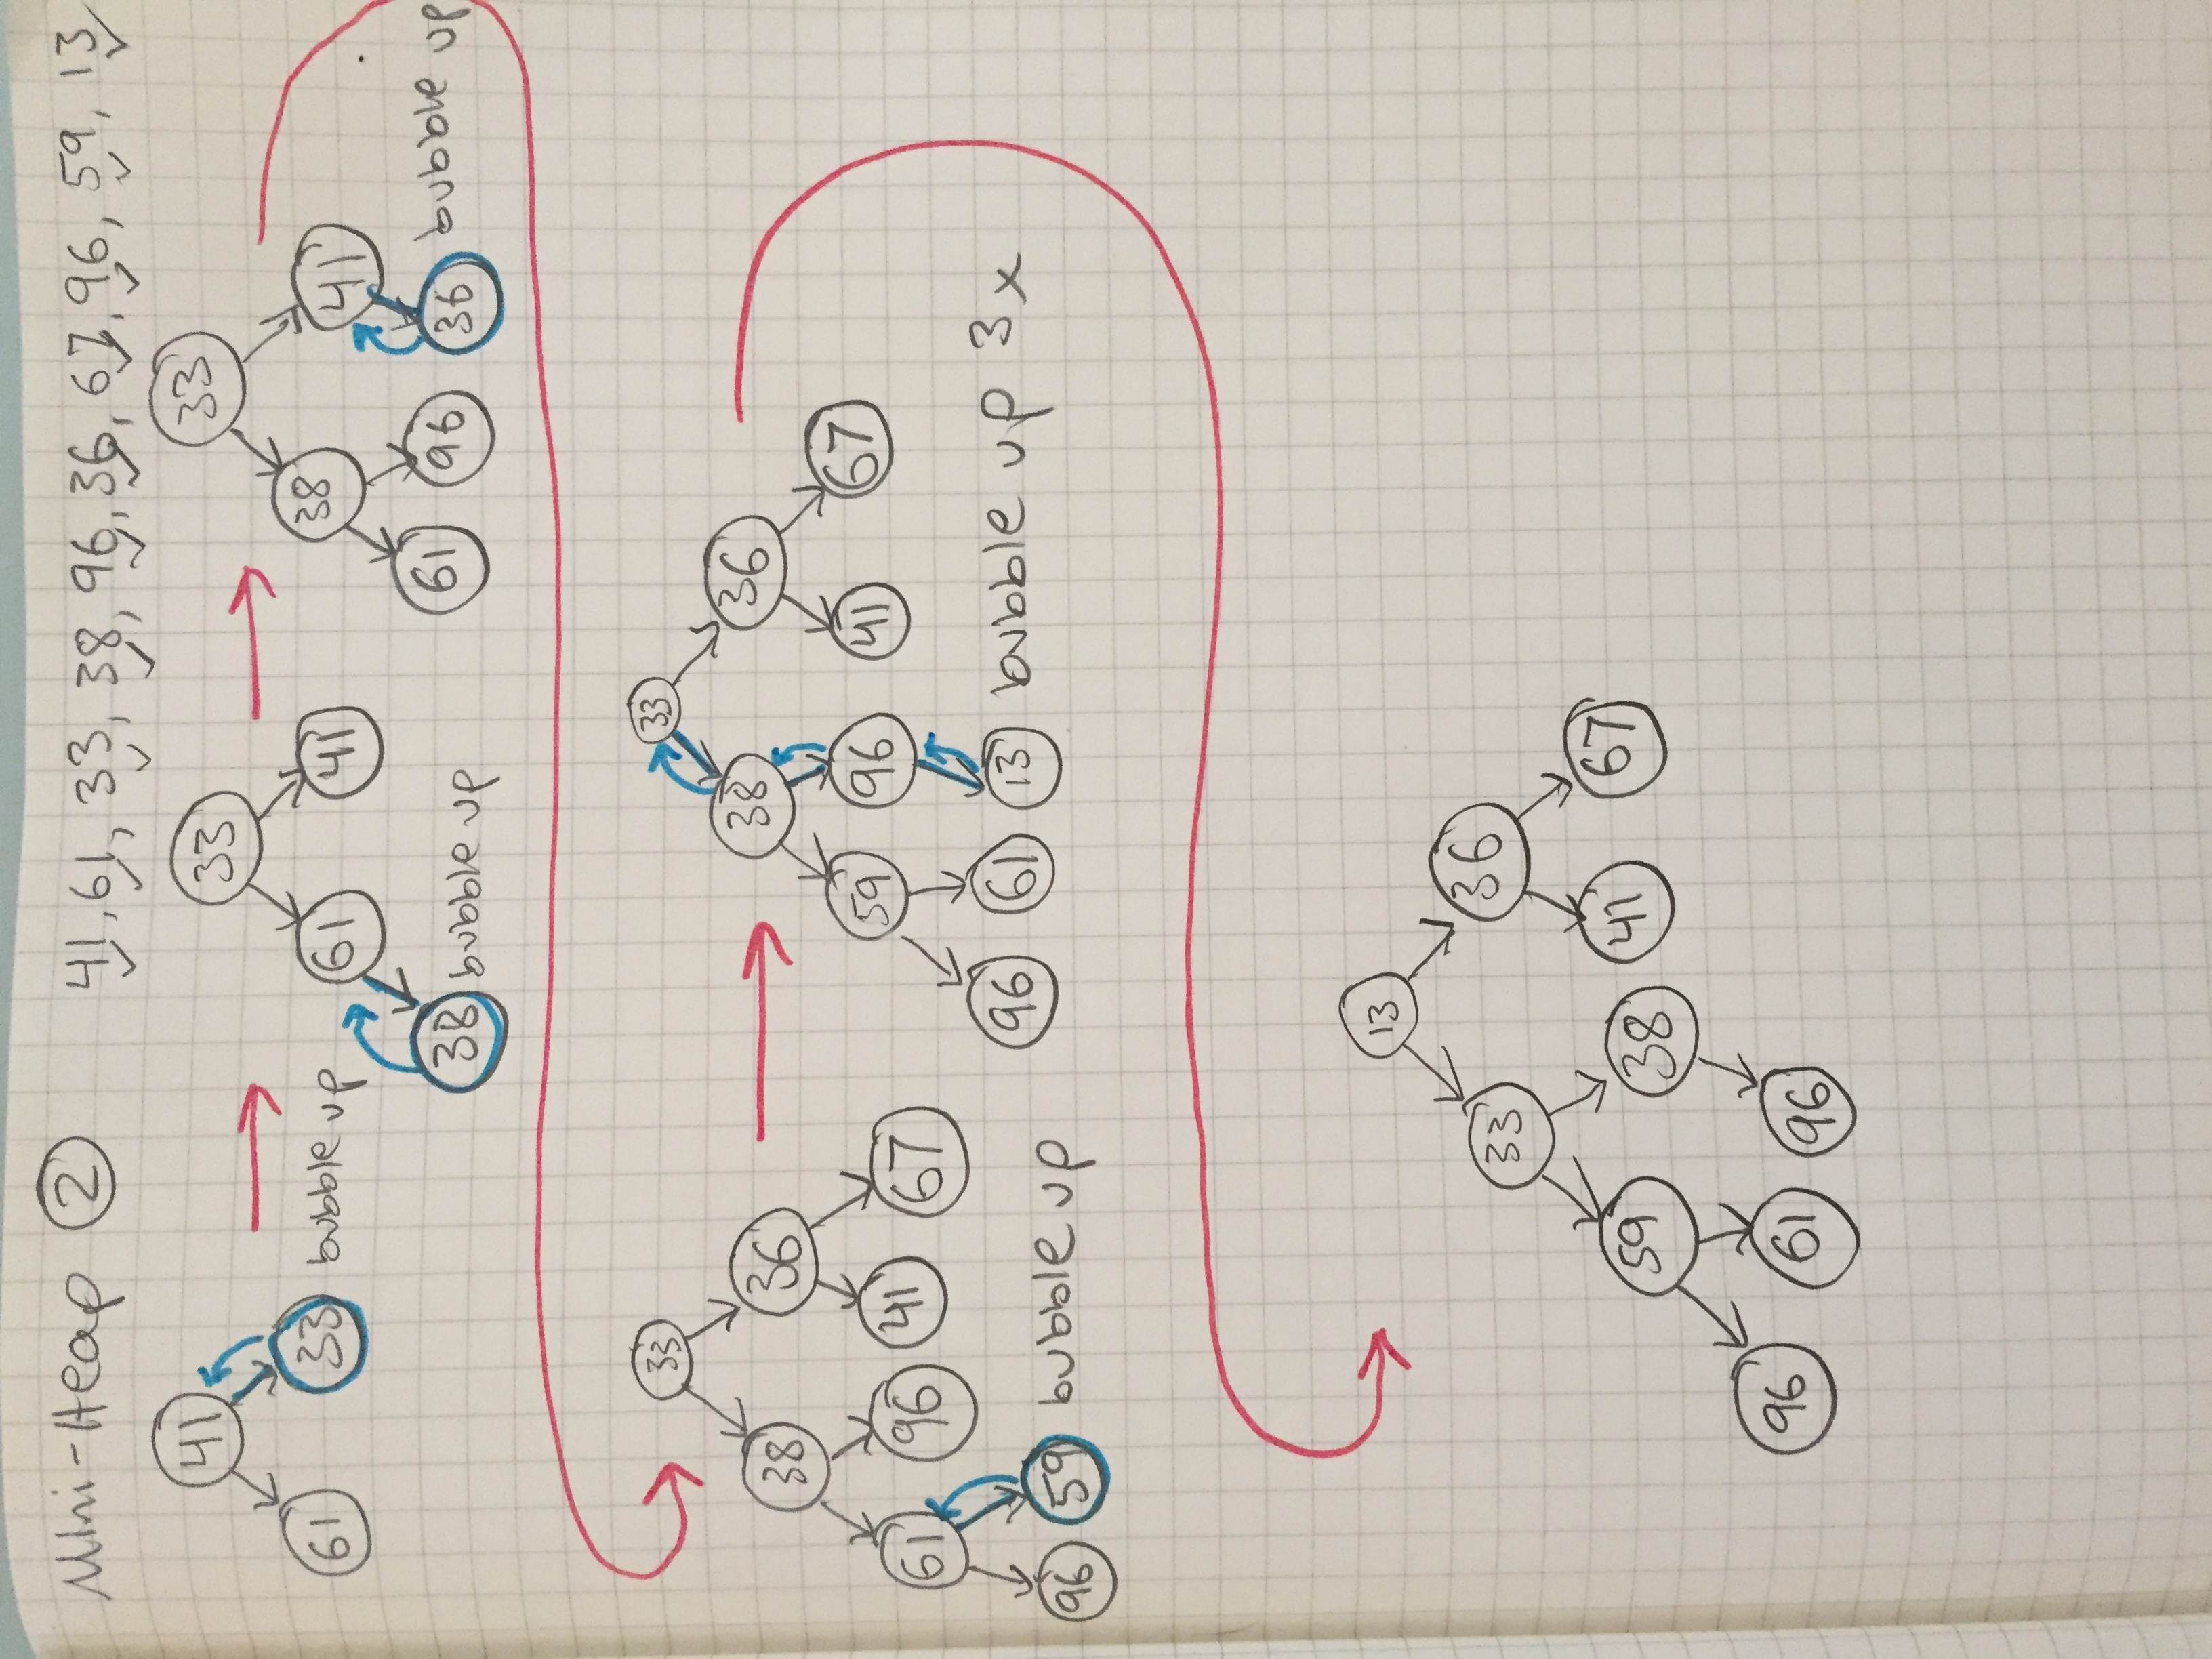 Mini-Heap 2
41, 61, 33, 38, 96, 36, 67, 96, 59, 13
41
61 33 bubble up
33
61 41
38 bubble up
33
38 41
61 96 36 bubble up
33
38 36
61 96 41 67
96 59 bubble up
33
38 36
59 96 41 67
96 61 13 bubble up 3x
13
33 36
59 38 41 67
96 61 96